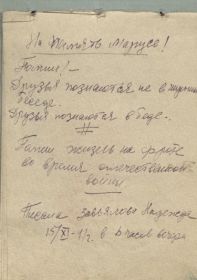 На память Марусе!
Галине!—
Друзья познаются не в хорошей
беседе.
Друзья познаются в беде.
жизнь на фронте
во время отечественной
войны
Писала Завьялова Надежда
15/XI- в 6 часов вечера